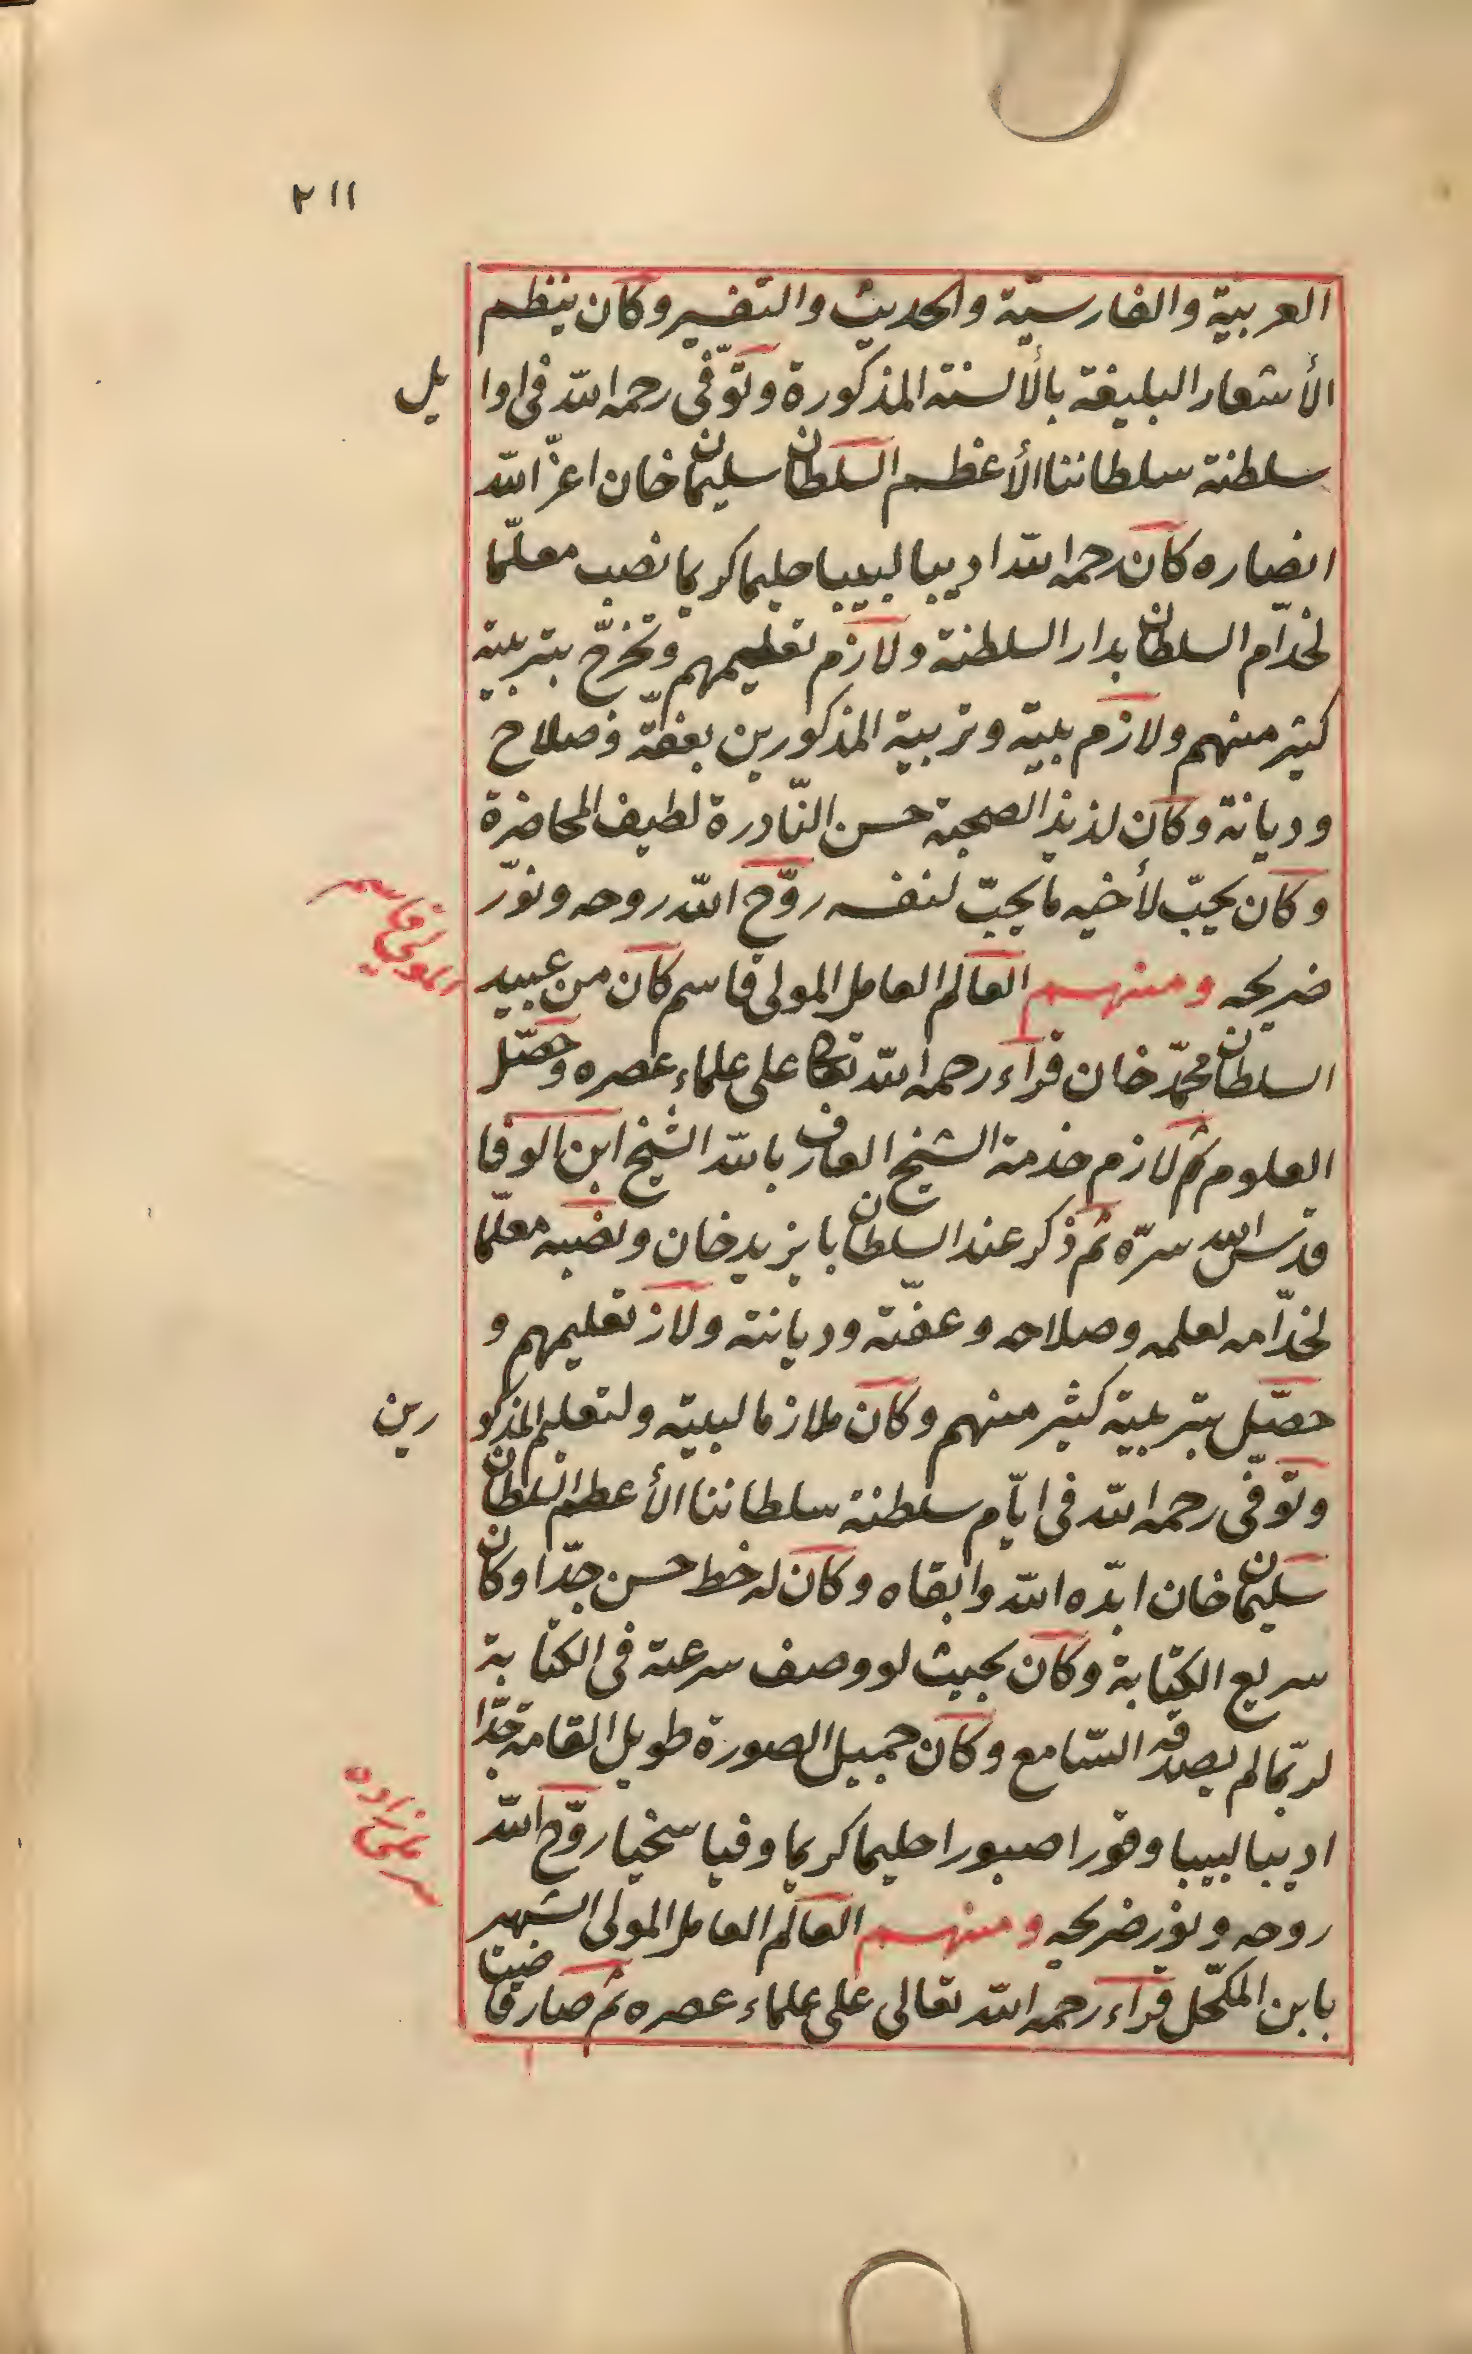 ٢١١
العربية والفارسيّة والحديث والتفسير وكان ينظم
الأشعار البليغة بالألسنة المذكورة وتوفّى رحمه الله فى اوا
يل
سلطنة سلطاننا الأعظم السلطان سليمان خان اعزّ الله
انصاره كان رحمه الله اديبا لبيبا حليما كريما نصب معلّما
لخدّام السلطان بدار السلطنة ولازم تعليمهم وتخرّج بتربيته
كثير منهم ولازم بيته وتربية المذكورين بعفّة وصلاح
وديانة وكان لذيذ الصحبة حسن النّادرة لطيف المحاضرة
وكان يحبّ لأخيه ما يحبّ لنفسه روّح الله روحه ونوّر
المولى قاسم
ضريحه ومنهم العالم العامل المولى قاسم كان من عبيد
السلطان محمّد خان قراء رحمه الله تعالى على علماء عصره وحصّل
العلوم ثم لازم خدمة الشيخ العارف بالله الشيخ ابن الوفا
قدس الله سرّه ثم ذكر عند السلطان بايزيد خان ونصبه معلّما
لخدّامه لعلمه وصلاحه وعفّته وديانته ولاز تعليمهم و
حصّل بتربيته كثير منهم وكان ملازما لبيته ولتعليم المذكو
رين
وتوفّى رحمه الله فى ايّام سلطنة سلطاننا الأعظم السلطان
سليمان خان ايّده الله وابقاه وكان له خط حسن جدّا وكان
سريع الكتابة وكان بحيث لو وصف سرعته فى الكتابة
لربّما لم يصدقه السّامع وكان جميل الصورة طويل القامة جدّا
اديبا لبيبا وقورا صبورا حليما كريما وفيا سخيا روّح الله
روحه ونور ضريحه ومنهم العالم العامل المولى الشهير
بابن المكحّل قراء رحمه الله تعالى على علماء عصره ثم صار قاضيا